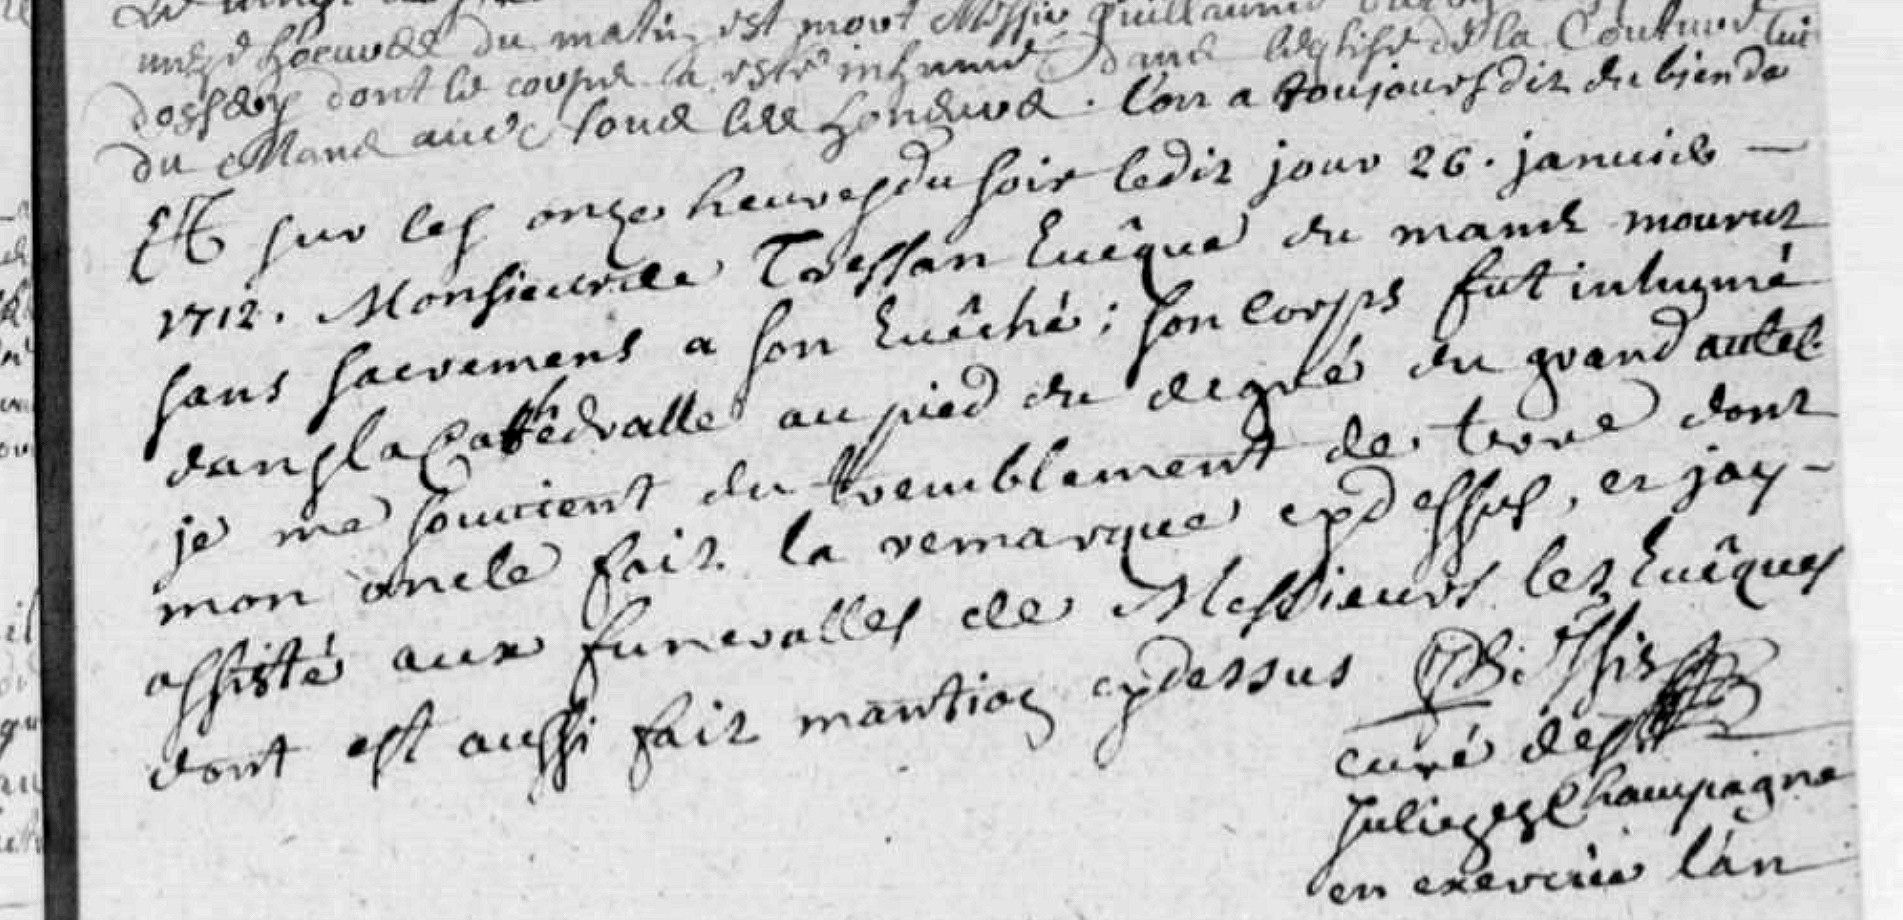 unze heures du matin est mort Messire Guillaume
dossey dont le corps a esté inhumé dans l'eglise de la Couture
du Mans avec tous les honeurs. l'on a toujours dit du bien de lui
Et sur les onze heures du soir ledit jour 26. janvier —
1712. Monsieur de Tressan Euêque du mans mourut
sans sacremens a son Euêché; son corps fut inhumé
dans la Cathédralle au pied du degré du grand autel.
je me souvient du tremblement de terre dont
mon oncle fait la remarque cydessus, et jay -
assisté aux funeralles de Messieurs les Euêques
dont est aussi fait mantion cydessus
curé de St
Julien en Champagne
en exercice l'an